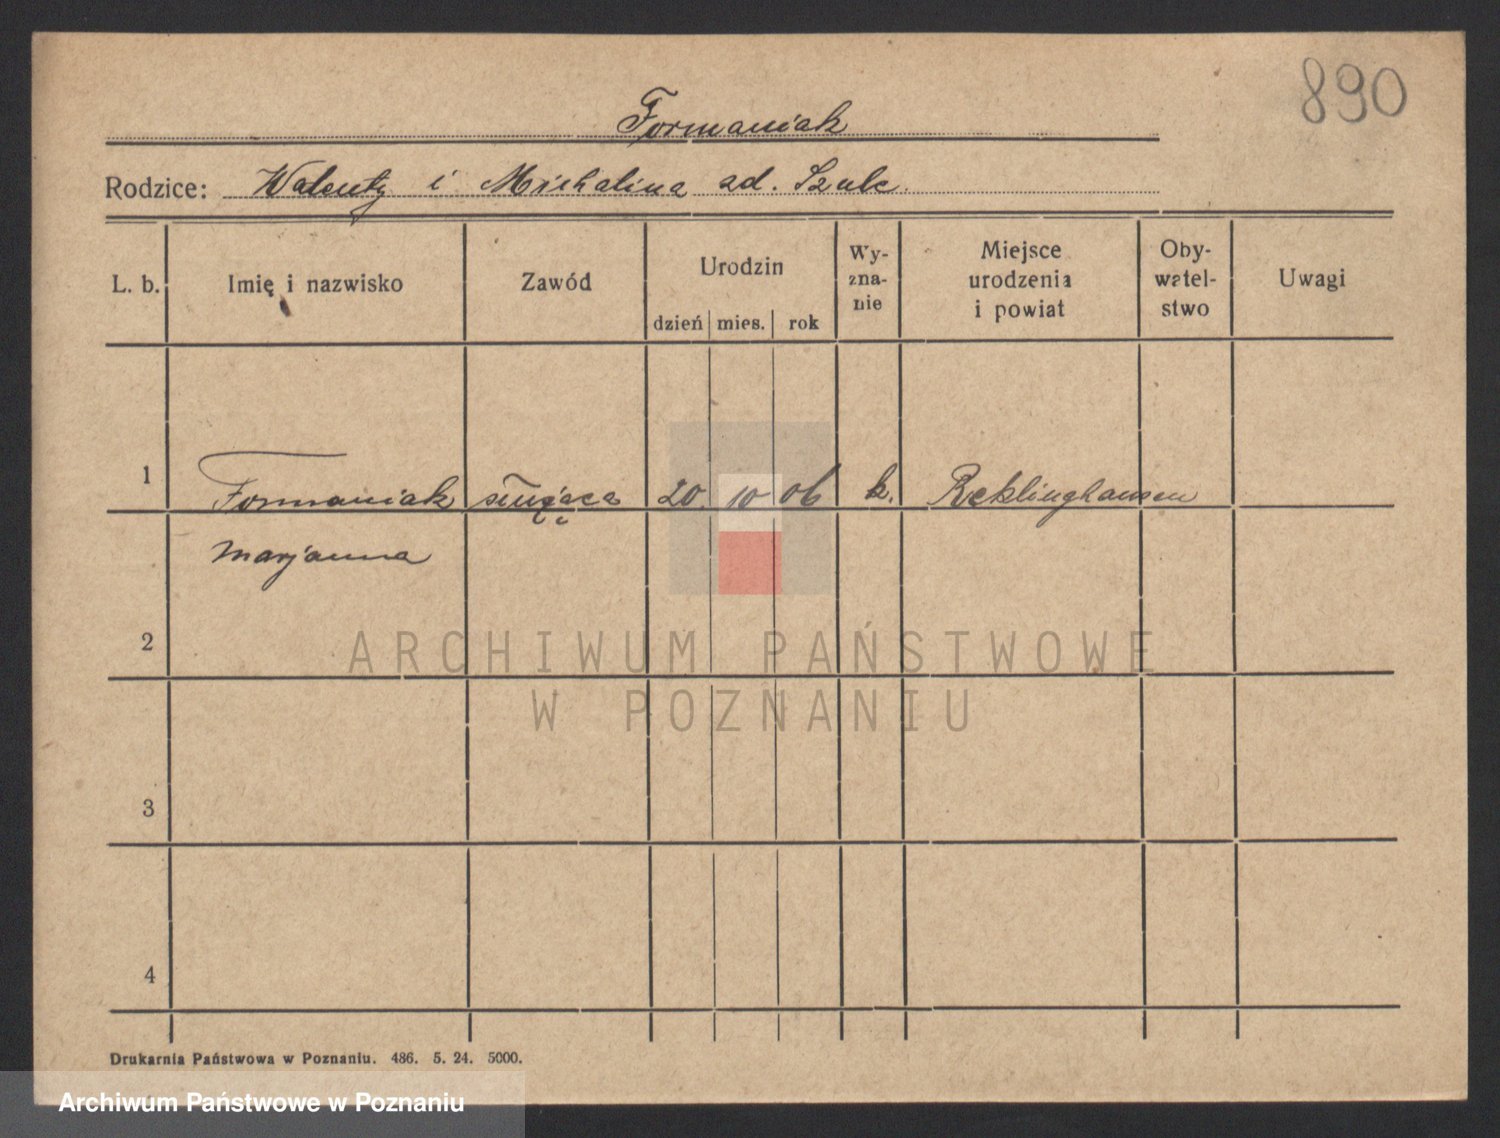 890
Formaniak
Rodzice: Walenty i Michalina zd. Szulc.
L. b. Imię i nazwisko Zawód Urodzin dzień mies. rok Wy-zna-nie Miejsce urodzenia i powiat Oby-watel-stwo Uwagi
1 Formaniak służąca 20. 10 06 k. Recklinghausen
Marjanna
2
ARCHIWUM PAŃSTWOWE
W POZNANIU
3
4
Drukarnia Państwowa w Poznaniu. 486. 5. 24. 5000.
Archiwum Państwowe w Poznaniu